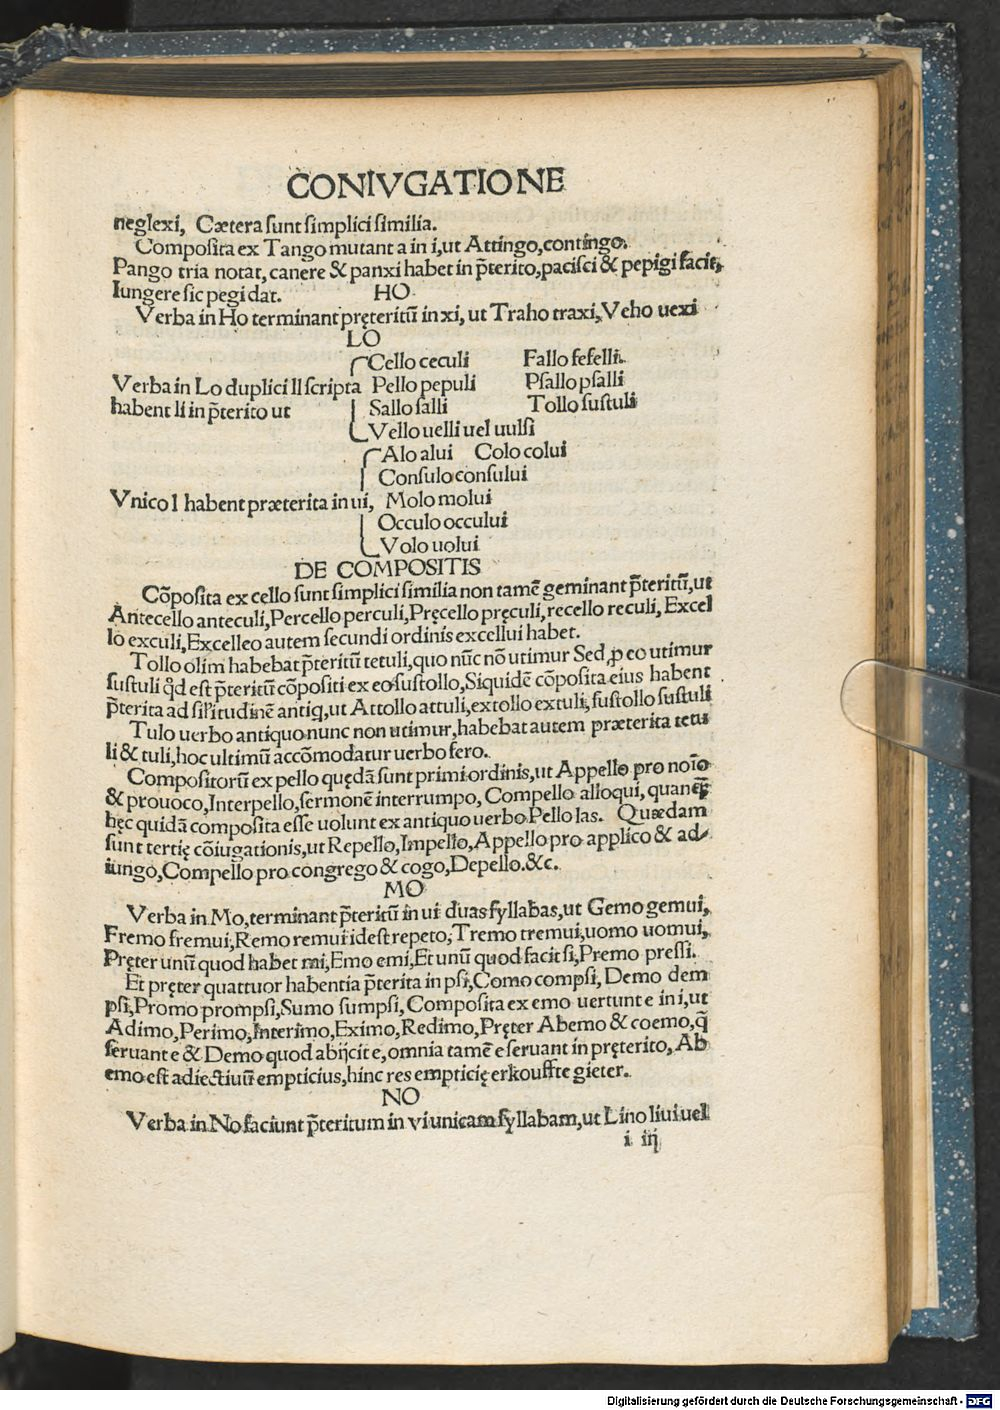 CONIVGATIONE
neglexi, Cætera sunt simplici similia.
Composita ex Tango mutant a in i,ut Attingo,contingo.
Pango tria notat, canere & panxi habet in p̄terito,pacisci & pepigi facit,
Iungere sic pegi dat. HO
Verba in Ho terminant pręteritū in xi, ut Traho traxi,Veho uexi
LO
Cello ceculi Fallo fefelli.
Verba in Lo duplici ll scripta Pello pepuli Psallo psalli
habent li in p̄terito ut Sallo salli Tollo sustuli
Vello uelli uel uulsi
Alo alui Colo colui
Consulo consului
Vnico l habent præterita in ui, Molo molui
Occulo occului
Volo uolui
DE COMPOSITIS
Cōposita ex cello sunt simplici similia non tamē geminant p̄teritū,ut
Antecello anteculi,Percello perculi,Pręcello pręculi,recello reculi, Excel
lo exculi,Excelleo autem secundi ordinis excellui habet.
Tollo olim habebat p̄teritū tetuli,quo nūc nō utimur Sed,p eo utimur
sustuli qd̄ est p̄teritū cōpositi ex eo sustollo,Siquidē cōposita eius habent
p̄terita ad sil'itudinē antiq,ut Attollo attuli,extollo extuli,sustollo sustuli
Tulo uerbo antiquo nunc non utimur,habebat autem præterita tetu
li & tuli,hoc ultimū accōmodatur uerbo fero.
Compositorū ex pello quędā sunt primi ordinis,ut Appello pro noīo
& prouoco,Interpello,sermonē interrumpo, Compello alloqui, quanq̄
hęc quidā composita esse uolunt ex antiquo uerbo Pello las. Quædam
sunt tertię cōiugationis,ut Repello,Impello,Appello pro applico & ad
iungo,Compello pro congrego & cogo,Depello.&c.
MO
Verba in Mo,terminant p̄teritū in ui duas syllabas,ut Gemo gemui,
Fremo fremui,Remo remui idest repeto,Tremo tremui,uomo uomui,
Pręter unū quod habet mi,Emo emi,Et unū quod facit si,Premo pressi.
Et pręter quattuor habentia p̄terita in psi,Como compsi, Demo dem
psi,Promo prompsi,Sumo sumpsi, Composita ex emo uertunt e in i,ut
Adimo,Perimo,Interimo,Eximo,Redimo,Pręter Abemo & coemo,q̄
seruant e & Demo quod abijcit e,omnia tamē e seruant in pręterito, Ab
emo est adiectiuū empticius,hinc res empticię erkouffte gieter.
NO
Verba in No faciunt p̄teritum in vi unicam syllabam,ut Lino liui uel
i iij
Digitalisierung gefördert durch die Deutsche Forschungsgemeinschaft - DFG